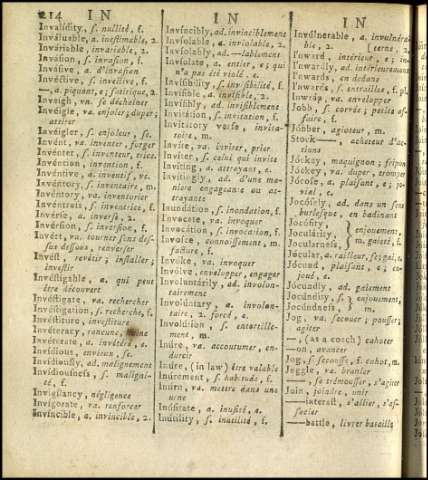 214 IN
IN
IN
Invalidity, ſ. nullité, f.
Inváluable, a. ineſtimable, 2.
Inváriable, invariable, 2.
Invaſion, ſ. invaſion, f.
Invaſive, a. d'invaſion
Invéctive, ſ. invective, f.
—, a. piquant, e; ſatirique, 2.
Inveigh, vn. ſe déchaîner
Invéigle, va. enjoler; duper;
attirer
Invéigler, ſ. enjoleur, ſe.
Invént, va. inventer, forger
Invénter, ſ. inventeur, trice.
Invéntion, invention, f.
Invéntive, a. inventif, ve.
Invéntory, ſ. inventaire, m.
Invéntory, va. inventorier
Invéntreſs, ſ. inventrice, f.
Invérſe, a. inverſe, 2.
Invérſion, ſ. inverſion, f.
Invért, va. tourner ſens deſ-
ſus deſſous, renverſer
Invéſt, revêtir; inſtaller;
inveſtir
Invéſtigable, a. qui peut
être découvert
Invéſtigate, va. rechercher
Inveſtigation, ſ. recherche, f.
Invéſtiture, inveſtiture
Invéteracy, rancune,
Invéterate, a. invétéré, e.
Invidious, envieux, ſe.
Invidiouſly, ad. malignement
Invidiouſneſs, ſ. maligni-
té, f.
Invigilancy, négligence
Invigorate, va. renforcer
Invincible, a. invincible, 2.
Invincibly, ad. invinciblement
Inviolable, a. inviolable, 2.
Inviolably, ad. —lablement
Inviolate, a. entier, e; qui
n'a pas été violé, e.
Inviſibility, ſ. inviſibilité, f.
Inviſible, a. inviſible, 2.
Inviſibly, inviſiblement
Invitation, ſ. invitation, f.
Invitatory verſe, invita-
toire, m.
Invite, va. inviter, prier
Inviter, ſ. celui qui invite
Inviting, a. attrayant, e.
Invitingly, ad. d'une ma-
niere engageante ou at-
trayante
Inundation, ſ. inondation, f.
Invocate, va. invoquer
Invocation, ſ. invocation, f.
Invoice, connoiſſement, m.
facture, f.
Invoke, va. invoquer
Invólve, envelopper, engager
Invóluntárily, ad. involon-
tairement
Invóluntary, a. involon-
taire, 2. forcé, e.
Involútion, ſ. entortille-
ment, m.
Inúre, va. accoutumer, en-
durcir
Inúre, (in law) être valable
Inúrement, ſ. habitude, f.
Inúrn, va. mettre dans une
urne
Inúſitate, a. inuſité, e.
Inútility, ſ. inutilité, f.
Invúlnerable, a. invulnéra-
ble, 2. [terne, 2.
I'nward, intérieur, e; in-
I'nwardly, ad. intérieurement
I'nwards, en dedans
I'nwards, ſ. entrailles, f. pl.
Inwráp, va. envelopper
Jobb, ſ. corvée; petite af-
faire, f.
Jóbber, agioteur, m.
Stock—, acheteur d'ac-
tions
Jóckey, maquignon; fripon
Jóckey, va. duper, tromper
Jócoſe, a. plaiſant, e; jo-
vial, e.
Jócoſely, ad. dans un ſens
burleſque, en badinant
Jócoſity,
Jocularity, enjouement,
Jocularneſs, m. gaieté, f.
Jócular, a. railleur, ſe; gai, e.
Jócund, plaiſant, e; en-
joué, e.
Jócundly, ad. gaiement
Jocúndity, ſ. enjouement,
Jócundneſs, m.
Jog, va. ſecouer; pouſſer;
agiter
—, (as a coach) cahoter
—on, avancer
Jog, ſ. ſecouſſe, f. cahot, m.
Joggle, va. branler
—, ſe trémouſſer, s'agiter
Join, joindre, unir
—intereſt, s'allier, s'aſ-
ſocier
—battle, livrer bataille